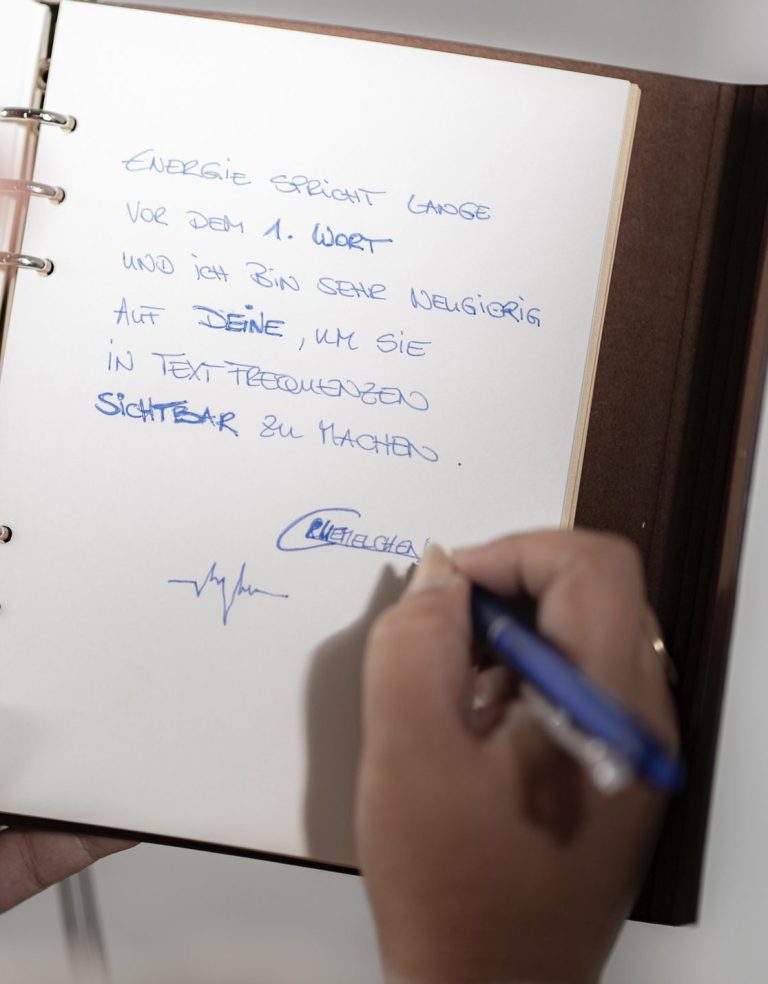 ENERGIE SPRICHT LANGE
VOR DEM 1. WORT
UND ICH BIN SEHR NEUGIERIG
AUF DEINE, UM SIE
IN TEXTFREQUENZEN
SICHTBAR ZU MACHEN.